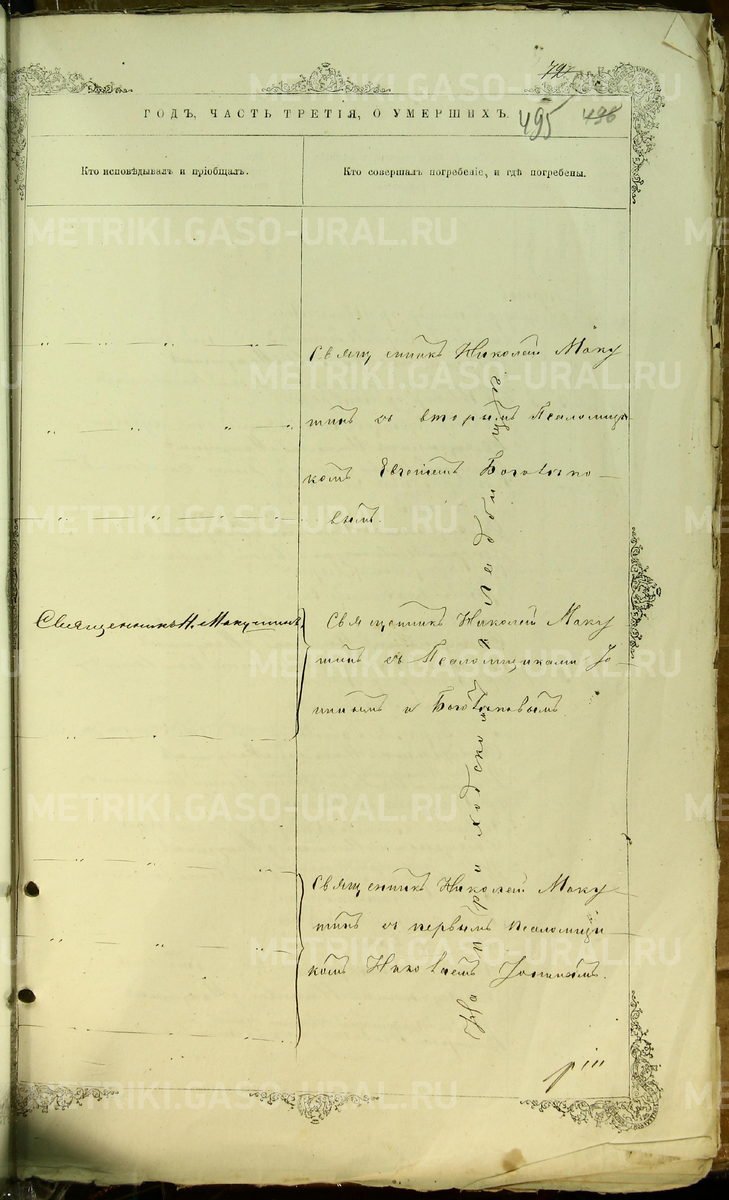 495
ГОДЪ, ЧАСТЬ ТРЕТІЯ, О УМЕРШИХЪ.
Кто исповѣдывалъ и пріобщалъ.
Кто совершалъ погребеніе, и гдѣ погребены.
Священникъ Николай Маку
шинъ съ вторымъ Псаломщи
комъ Евгеніемъ
вымъ.
Священникъ Н. Макушинъ
Священникъ Николай Маку
шинъ съ Псаломщиками
и
Священникъ Николай Маку
шинъ съ первымъ псаломщи
комъ Николаемъ
На приходскомъ кладбищѣ
METRIKI.GASO-URAL.RU